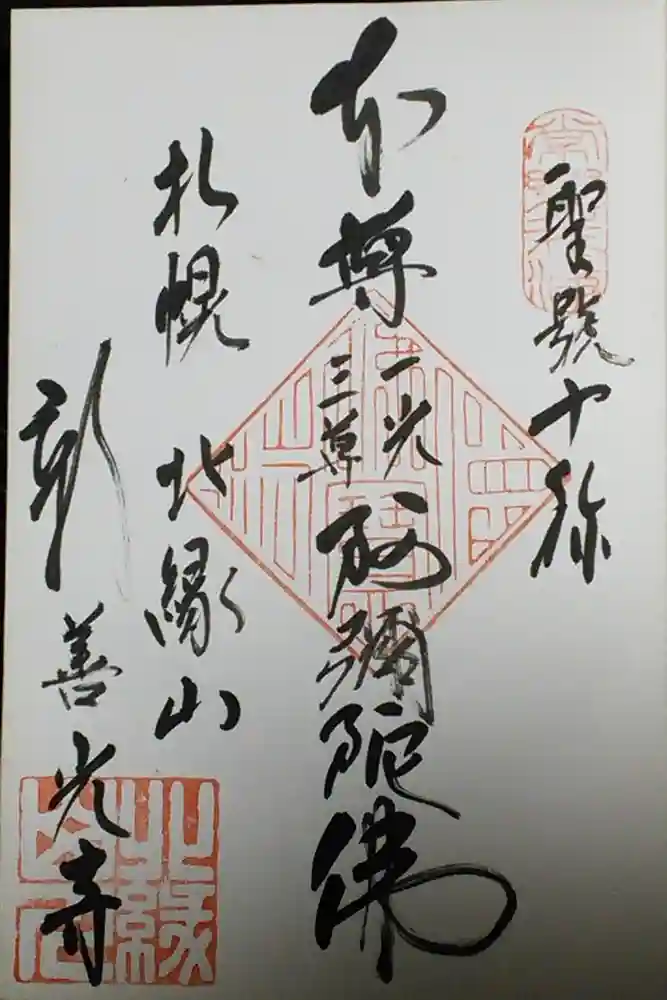 聖號十称
本尊 一光三尊 阿彌陀佛
札幌 北縁山
新善光寺